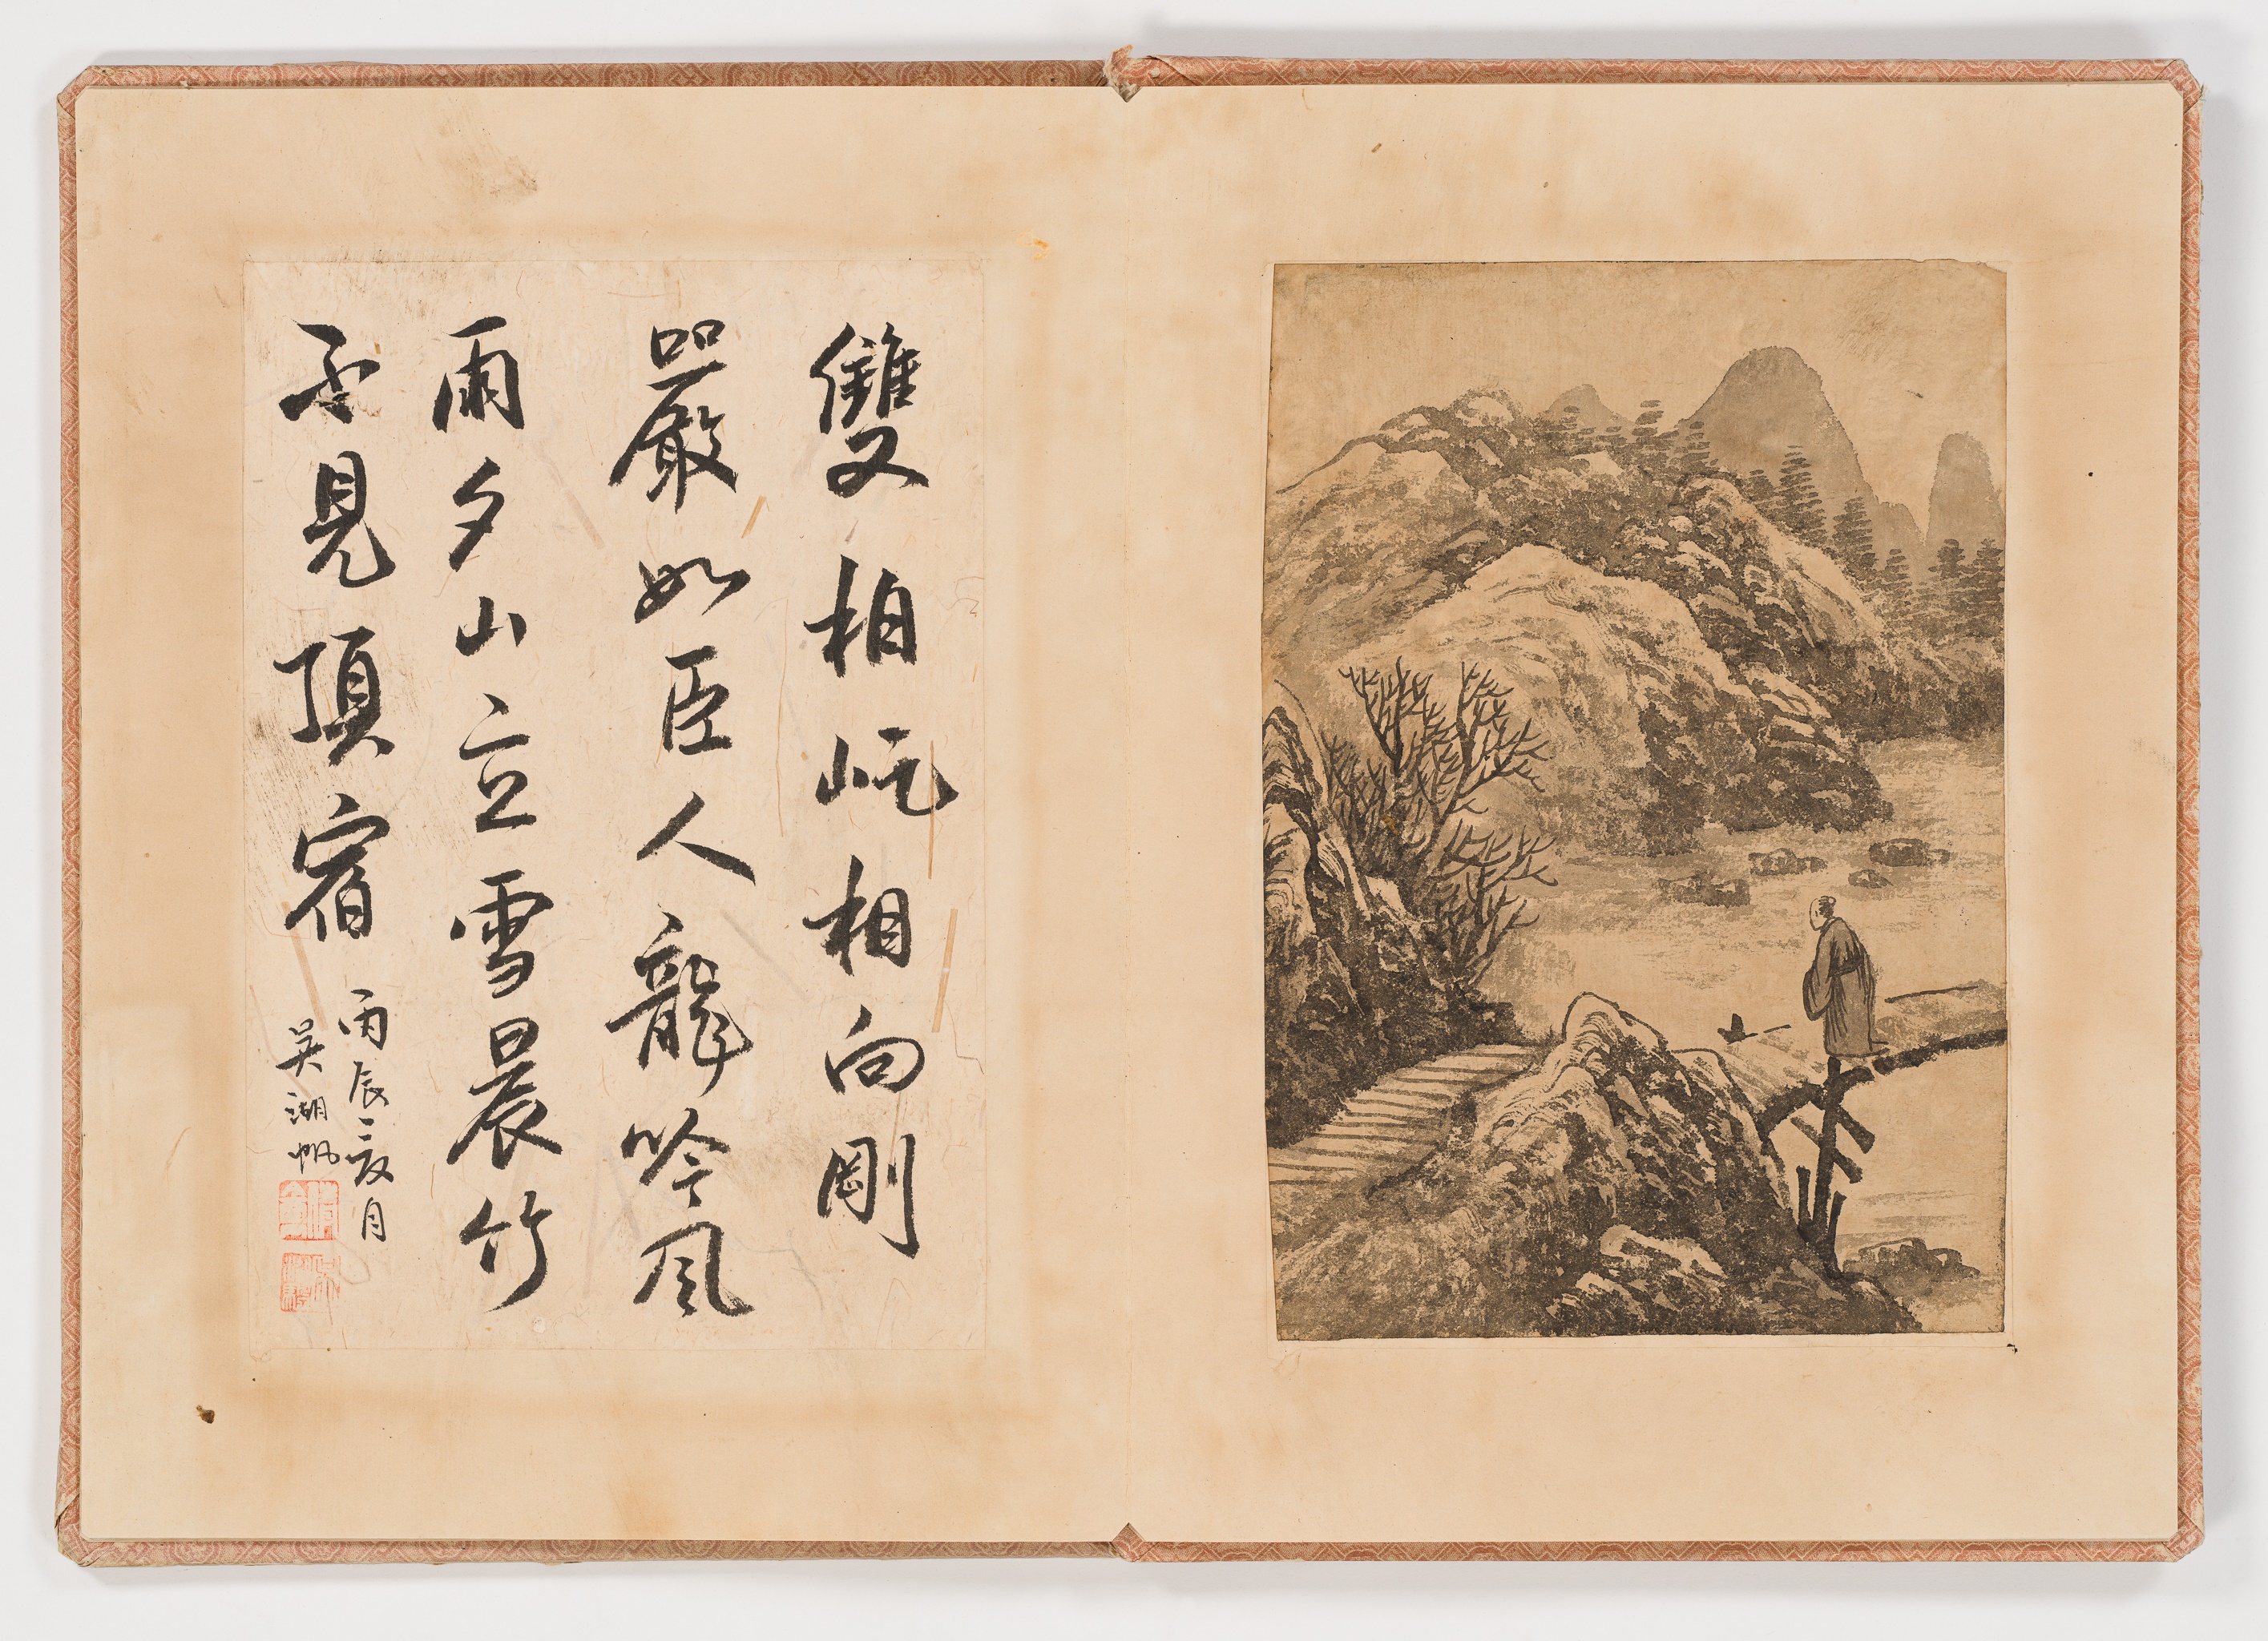 雙柏屹相向剛
嚴如臣人龍吟風
雨夕山立雪晨竹
不見頂宿
丙辰二月
吳湖帆